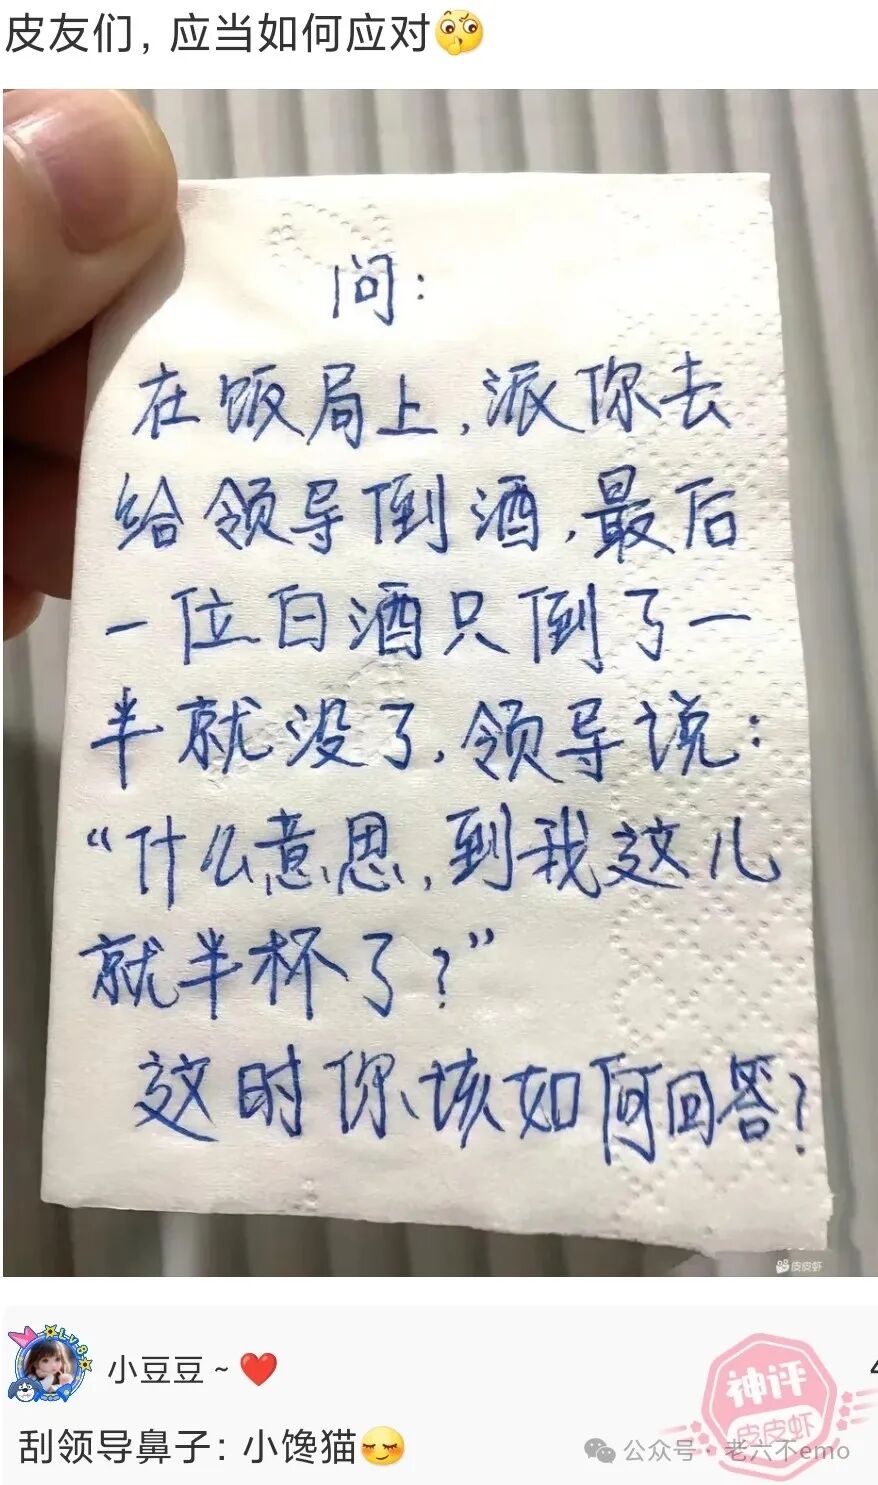 皮友们，应当如何应对🤫
问：
在饭局上，派你去
给领导倒酒，最后
一位白酒只倒了一
半就没了，领导说：
“什么意思，到我这儿
就半杯了？”
这时你该如何回答？
皮皮虾
小豆豆～❤️
神评
皮皮虾
刮领导鼻子：小馋猫😌
公众号·老六不emo